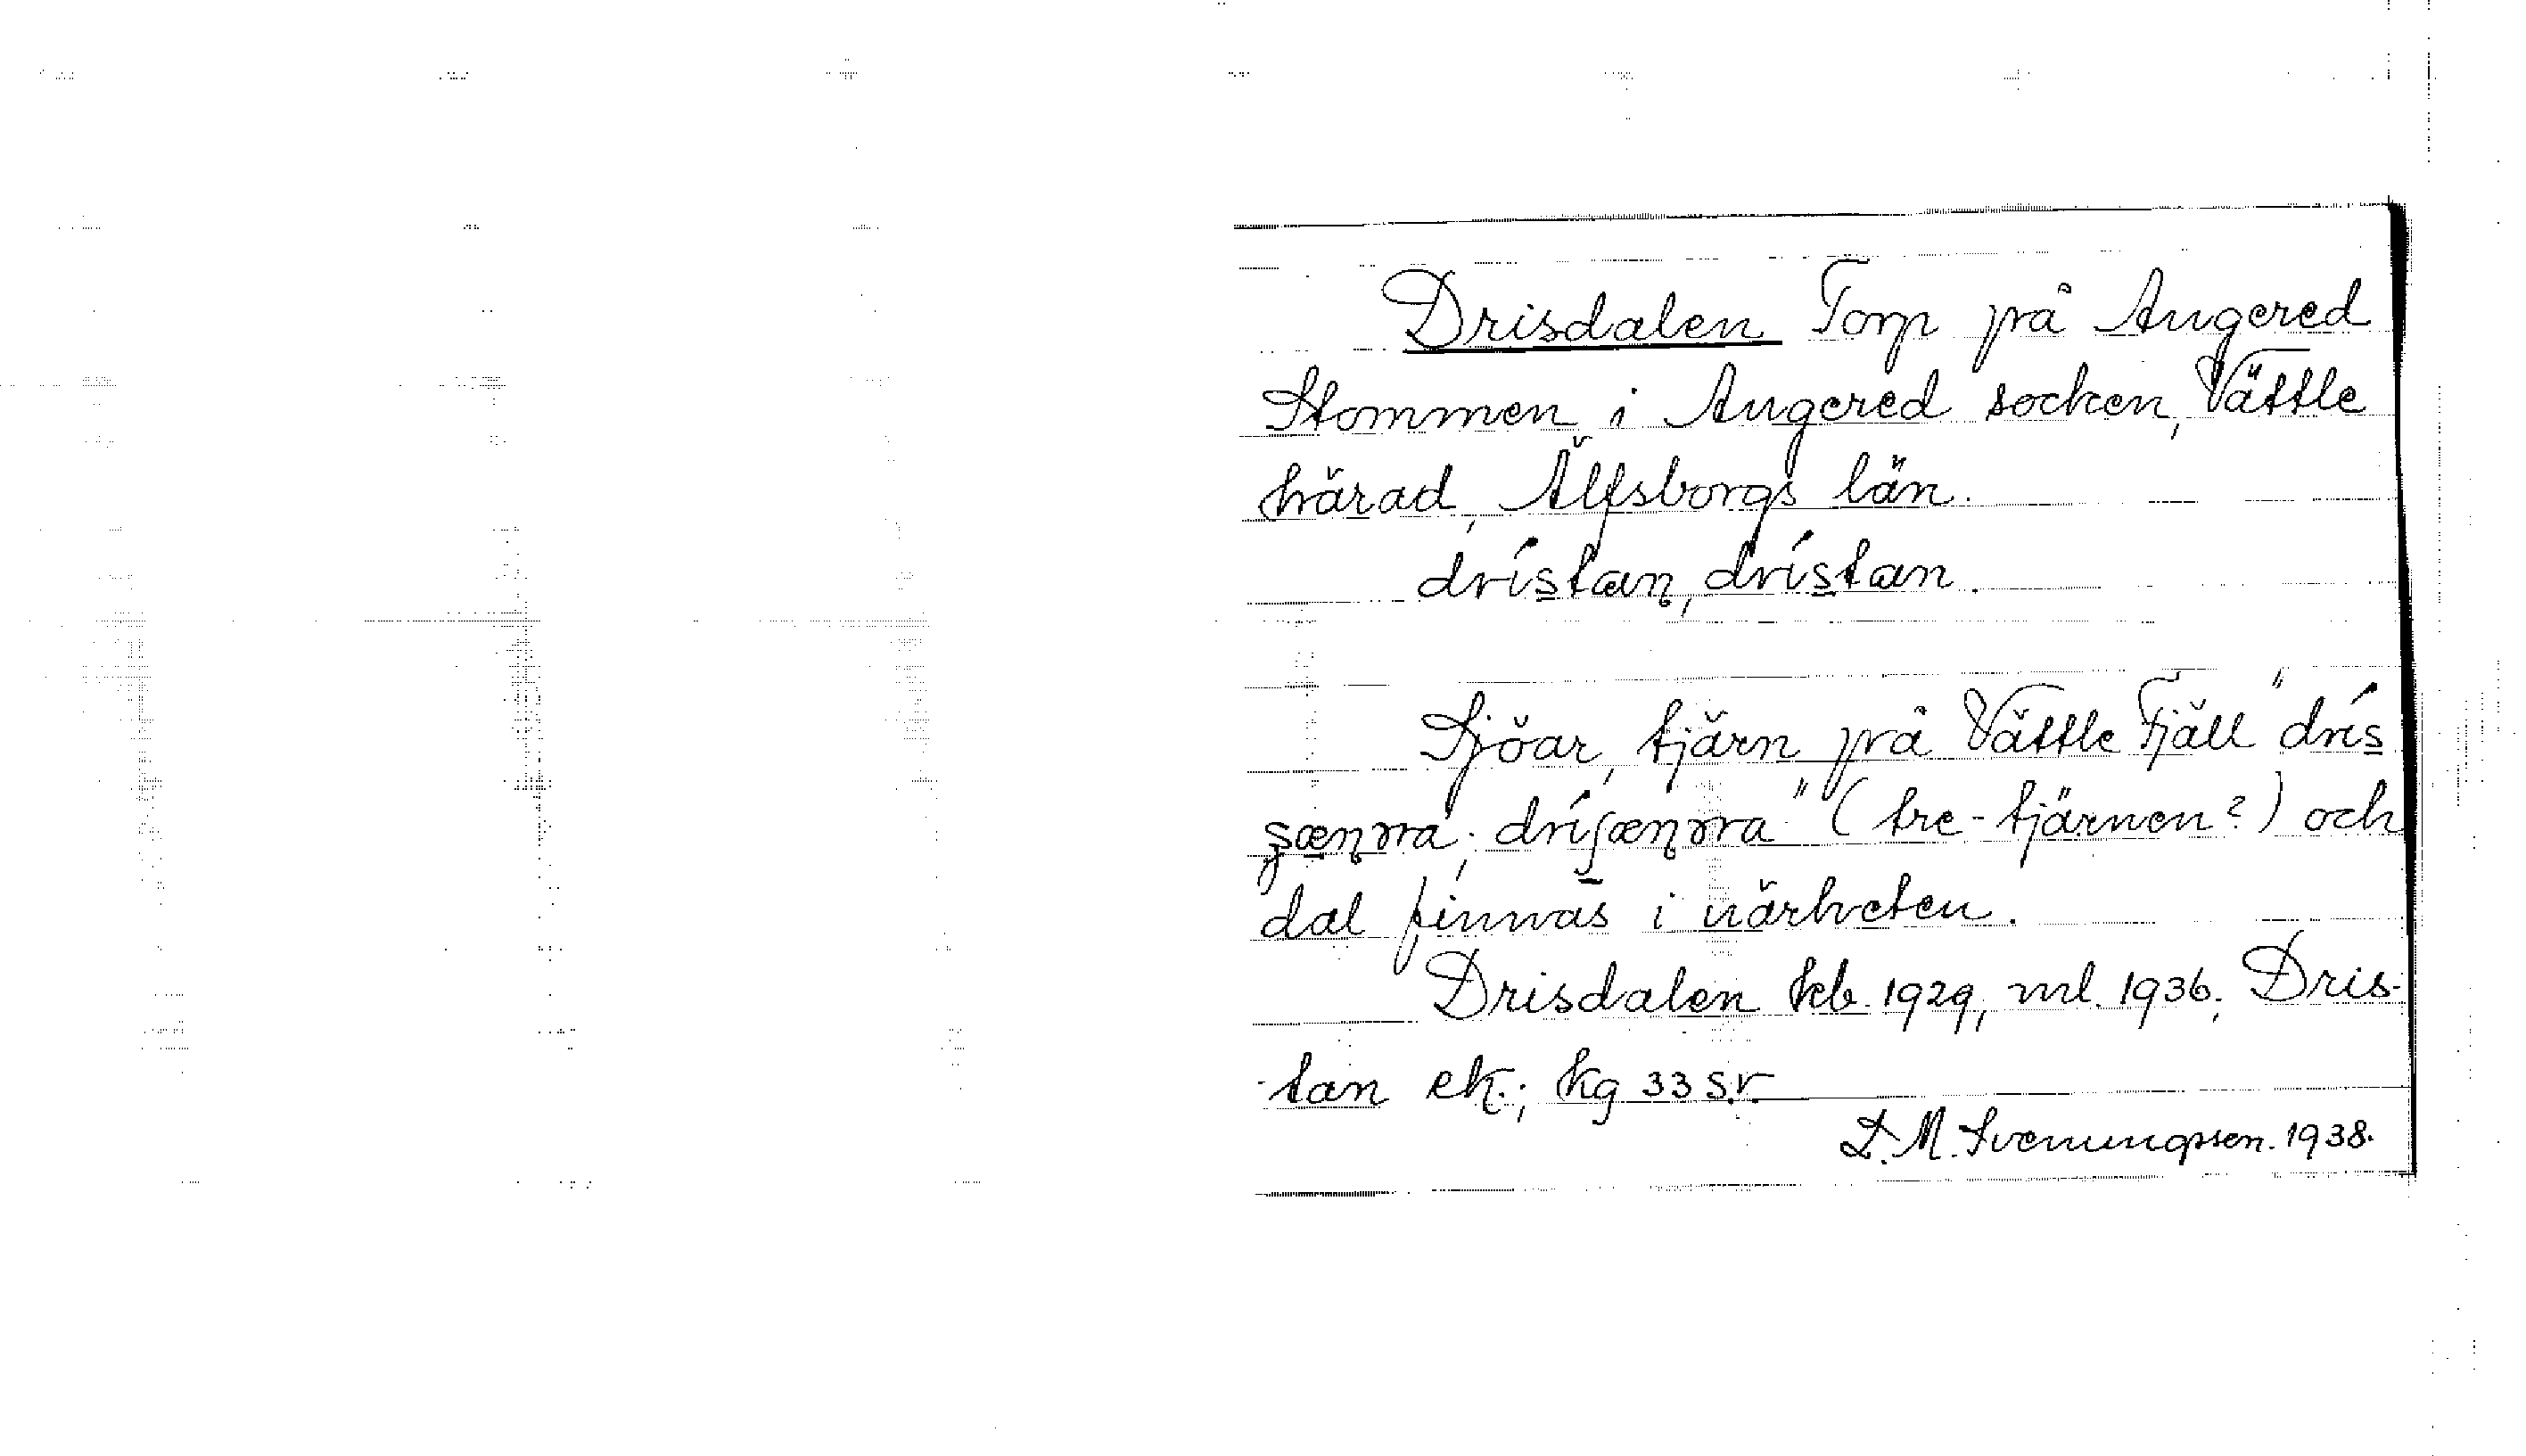 Drisdalen Torp på Angered
Stommen i Angered socken, Vättle
härad, Älfsborgs län.
drístaɳ, drístan.
Sjöar, tjärn på Vättle Fjäll "drís
(tre-tjärnen?) och
dal finnas i närheten.
Drisdalen kb. 1929, ml. 1936, Dris-
tan ek.; kg 33 s.v.
L. M. Svenungsson. 1938.